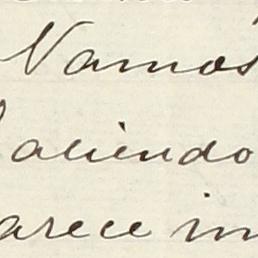 Vamos
aciendo
arece in